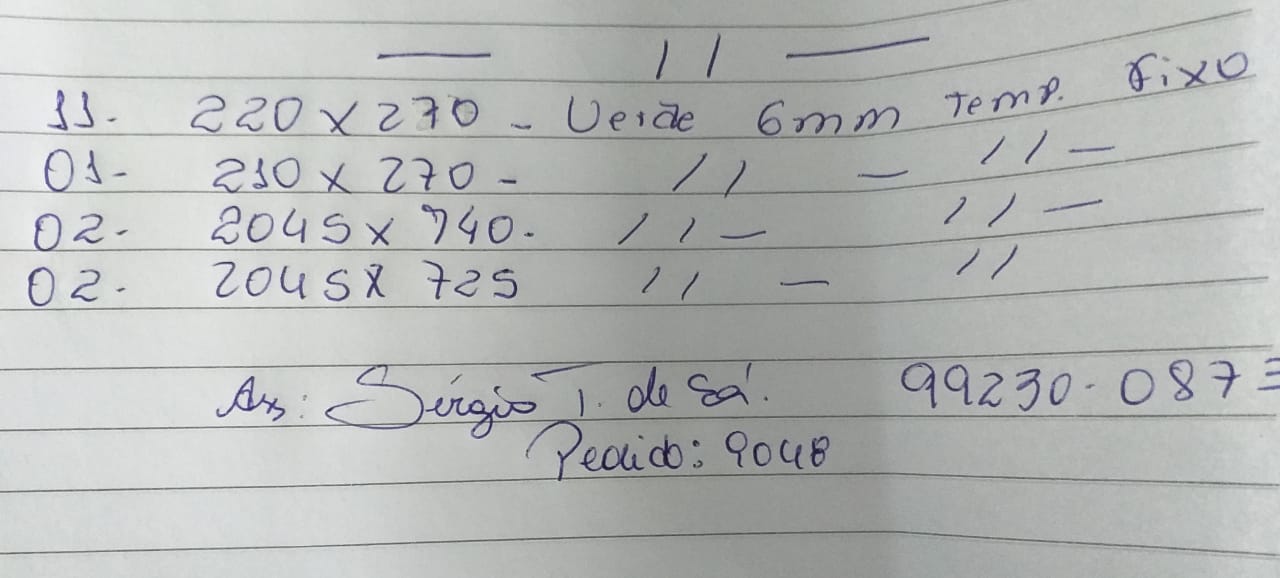 — // —
11. 220 x 270 - Verde 6mm Temp. Fixo
01- 210 x 270 - // — // —
02. 2045 x 740. // — // —
02. 2045 x 725 // — //
Ass: Sérgio T. de Sá. 99230-087
Pedido: 9048